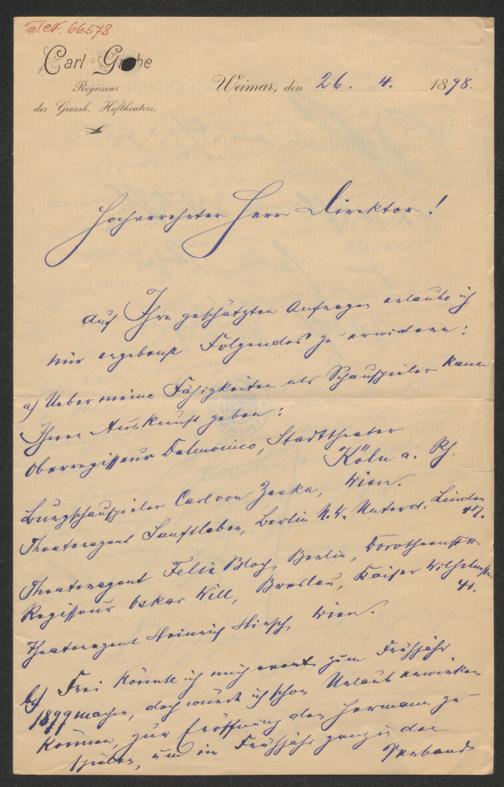 J.N. 66578
Carl Grube
Regisseur
des Grossh. Hoftheaters.
Weimar, den 26. 4. 1898.
Hochverehrter Herr Direktor!
Auf Ihre geschätzten Anfragen erlaube ich
mir ergebenst Folgendes zu erwidern:
a) Ueber meine Fähigkeiten als Schauspieler kann
Ihnen Auskunft geben:
Oberregisseur Dalmonico, Stadttheater
Köln a. Rh.
Burgschauspieler Carl von Zeska, Wien.
Theateragent Sanftleben, Berlin N.W. Unter d. Linden
47.
Theateragent Felix Bloch, Berlin, Dorotheenstr.
Regisseur Oskar Will, Breslau, Kaiser Wilhelmstr.
41.
Theateragent Heinrich Hirsch, Wien.
b) Frei könnte ich mich event. zum Frühjahr
1899 machen, doch würde ich schon Urlaub erwirken
können, zur Eröffnung den Hermann zu
spielen, um im Frühjahr ganz in den
Verband